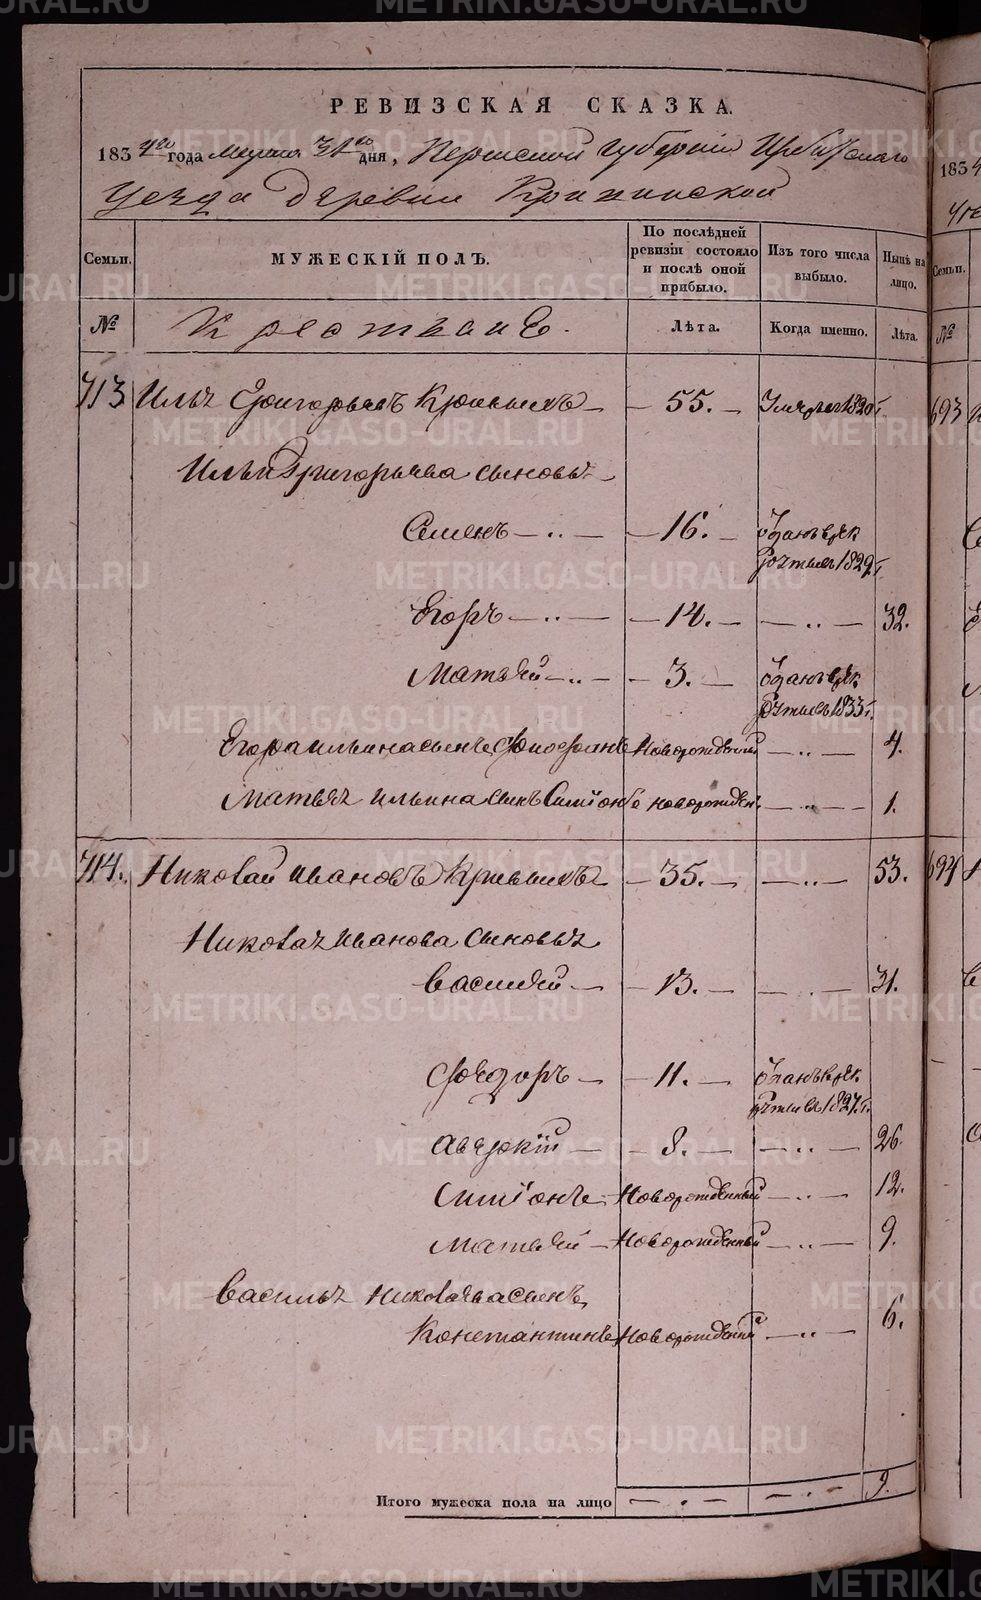 РЕВИЗСКАЯ СКАЗКА.
183 4го года Марта 31го дня, Пермской губернии Ирбитскаго
уезда деревни
Семьи.
МУЖЕСКІЙ ПОЛЪ.
По послѣдней ревизіи состояло и послѣ оной прибыло.
Изъ того числа выбыло.
Нынѣ на лицо.
№
Крестьяне.
Лѣта.
Когда именно.
Лѣта.
713 Илья Григорьевъ Кривыхъ — 55. — Умеръ 1820 г.
Ильи Григорьева сыновья
Семенъ — 16. — отданъ в рек
руты въ 1829 г.
Егоръ — 14. — 32.
Матвей — 3. — отданъ в рек
руты въ 1833 г.
Егора Ильина сынъ новорожденный 4.
Матвея Ильина сынъ Симіонъ новорожден. 1.
714. Николай Ивановъ Кривыхъ — 35. — 53.
Николая Иванова сыновья
Василей — 13. — 31.
Федоръ — 11. — отданъ в рек
руты въ 1827 г.
Аверкій — 8. — 26
Симіонъ — Новорожденный 12.
Матвей — Новорожденный 9.
Василья Николаева сынъ
Константинъ Новорожденный 6.
Итого мужеска пола на лицо 9.
183
Семьи.
№
693
694
METRIKI.GASO-URAL.RU